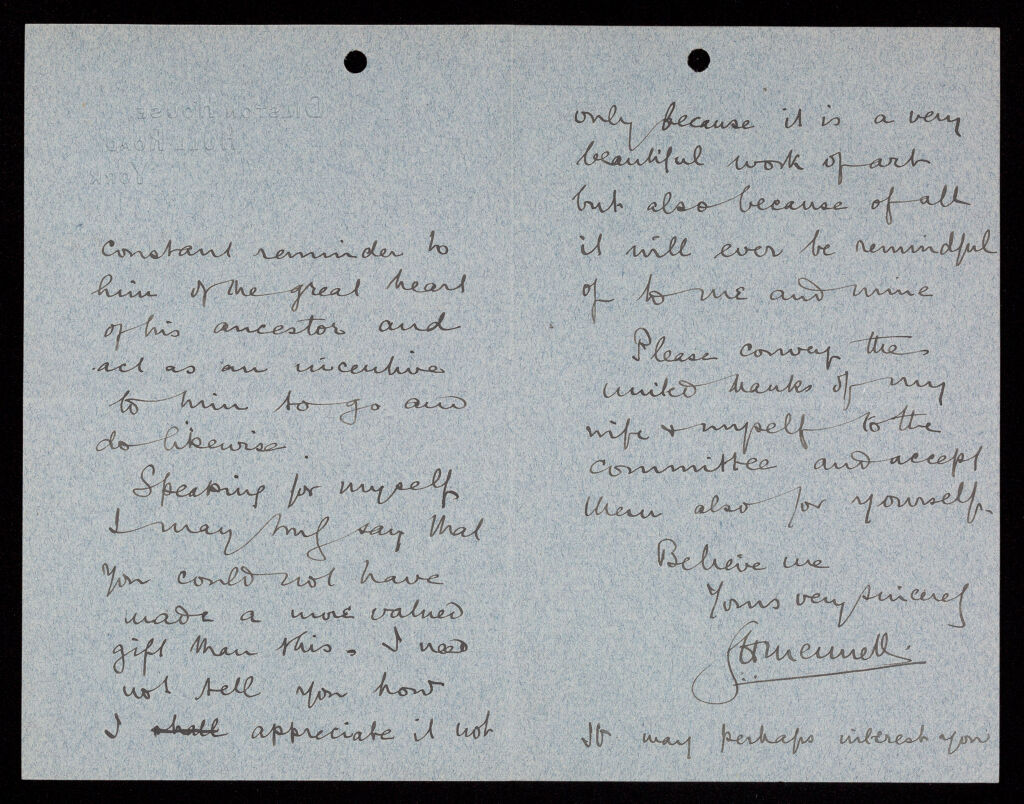 DILSTON HOUSE
HULL ROAD
YORK
constant reminder to
him of the great heart
of his ancestor and
act as an incentive
to him to go and
do likewise
Speaking for myself
I may truly say that
you could not have
made a more valued
gift than this. I need
not tell you how
I shall appreciate it not
only because it is a very
beautiful work of art
but also because of all
it will ever be remindful
of to me and mine
Please convey the
united thanks of my
wife & myself to the
committee and accept
them also for yourself.
Believe me
Yours very sincerely
It may perhaps interest you